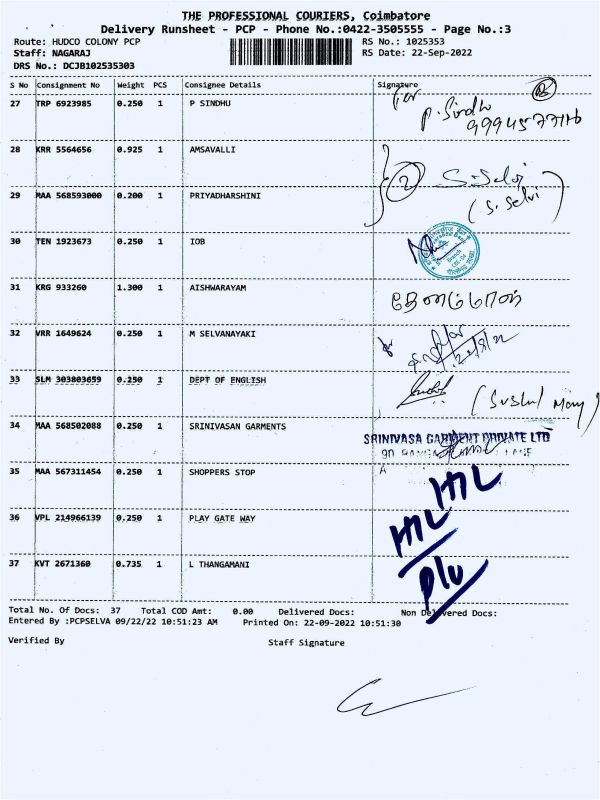 THE PROFESSIONAL COURIERS, Coimbatore
Delivery Runsheet - PCP - Phone No.:0422-3505555 - Page No.:3
Route: HUDCO COLONY PCP RS No.: 1025353
Staff: NAGARAJ RS Date: 22-Sep-2022
DRS No.: DCJB102535303
S No Consignment No Weight PCS Consignee Details Signature
27 TRP 6923985 0.250 1 P SINDHU for P. Sindhu
28 KRR 5564656 0.925 1 AMSAVALLI 2 S. Selvi
29 MAA 568593000 0.200 1 PRIYADHARSHINI (S. Selvi)
30 TEN 1923673 0.250 1 IOB
31 KRG 933260 1.300 1 AISHWARAYAM
32 VRR 1649624 0.250 1 M SELVANAYAKI
33 SLM 303803659 0.250 1 DEPT OF ENGLISH
34 MAA 568502088 0.250 1 SRINIVASAN GARMENTS SRINIVASA GARMENT PRIVATE LTD
35 MAA 567311454 0.250 1 SHOPPERS STOP
36 VPL 214966139 0.250 1 PLAY GATE WAY
37 KVT 2671360 0.735 1 L THANGAMANI
Total No. Of Docs: 37 Total COD Amt: 0.00 Delivered Docs: Non Delivered Docs:
Entered By :PCPSELVA 09/22/22 10:51:23 AM Printed On: 22-09-2022 10:51:30
Verified By Staff Signature